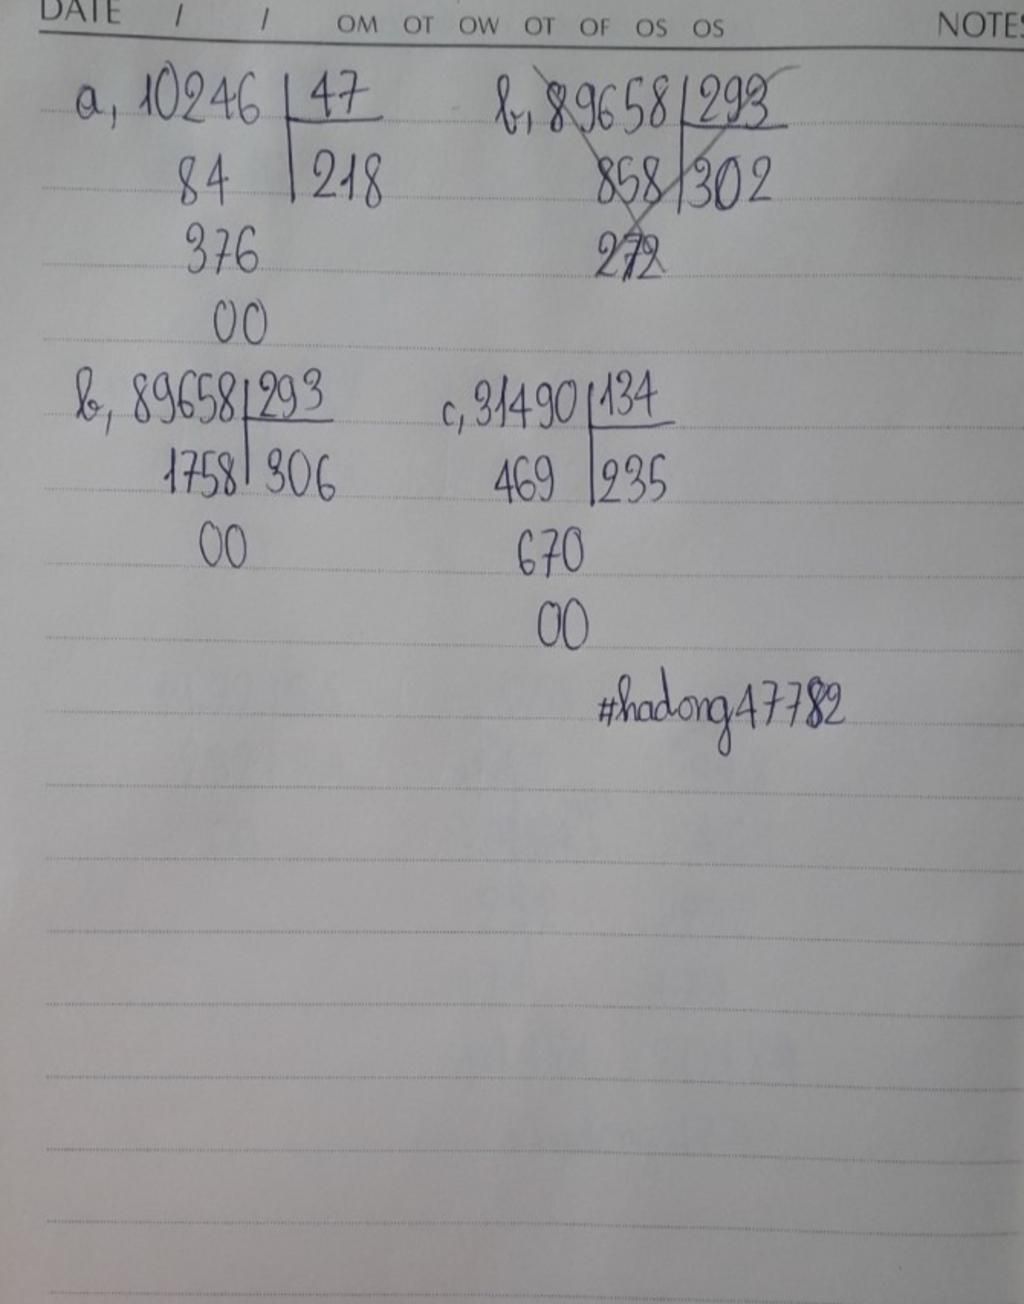 DATE / / OM OT OW OT OF OS OS NOTES
a, 10246 | 47
84 | 218
376
00
b, 89658 | 293
858 | 302
272
b, 89658 | 293
1758 | 306
00
c, 31490 | 134
469 | 235
670
00
#hadong47782